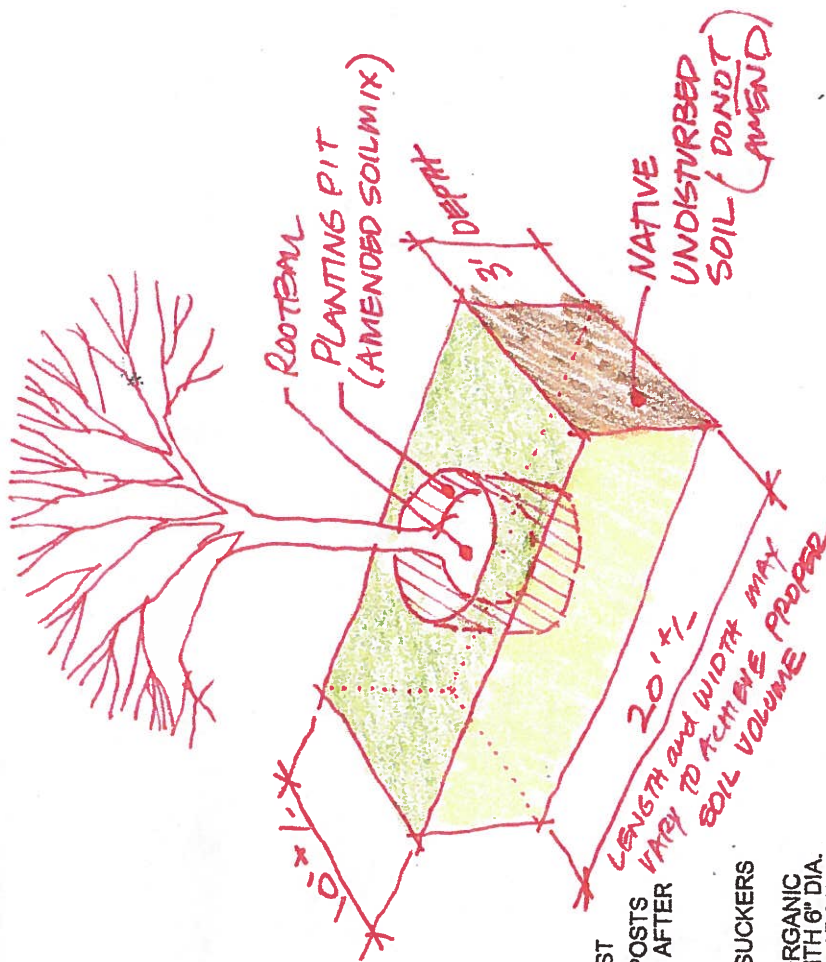 ROOTBALL
PLANTING PIT
(AMENDED SOIL MIX)
3'
DEPTH
NATIVE
UNDISTURBED
SOIL (DO NOT
AMEND)
20' +/-
LENGTH and WIDTH MAY
VARY TO ACHIEVE PROPER
SOIL VOLUME
ST
POSTS
AFTER
SUCKERS
RGANIC
TH 6" DIA.